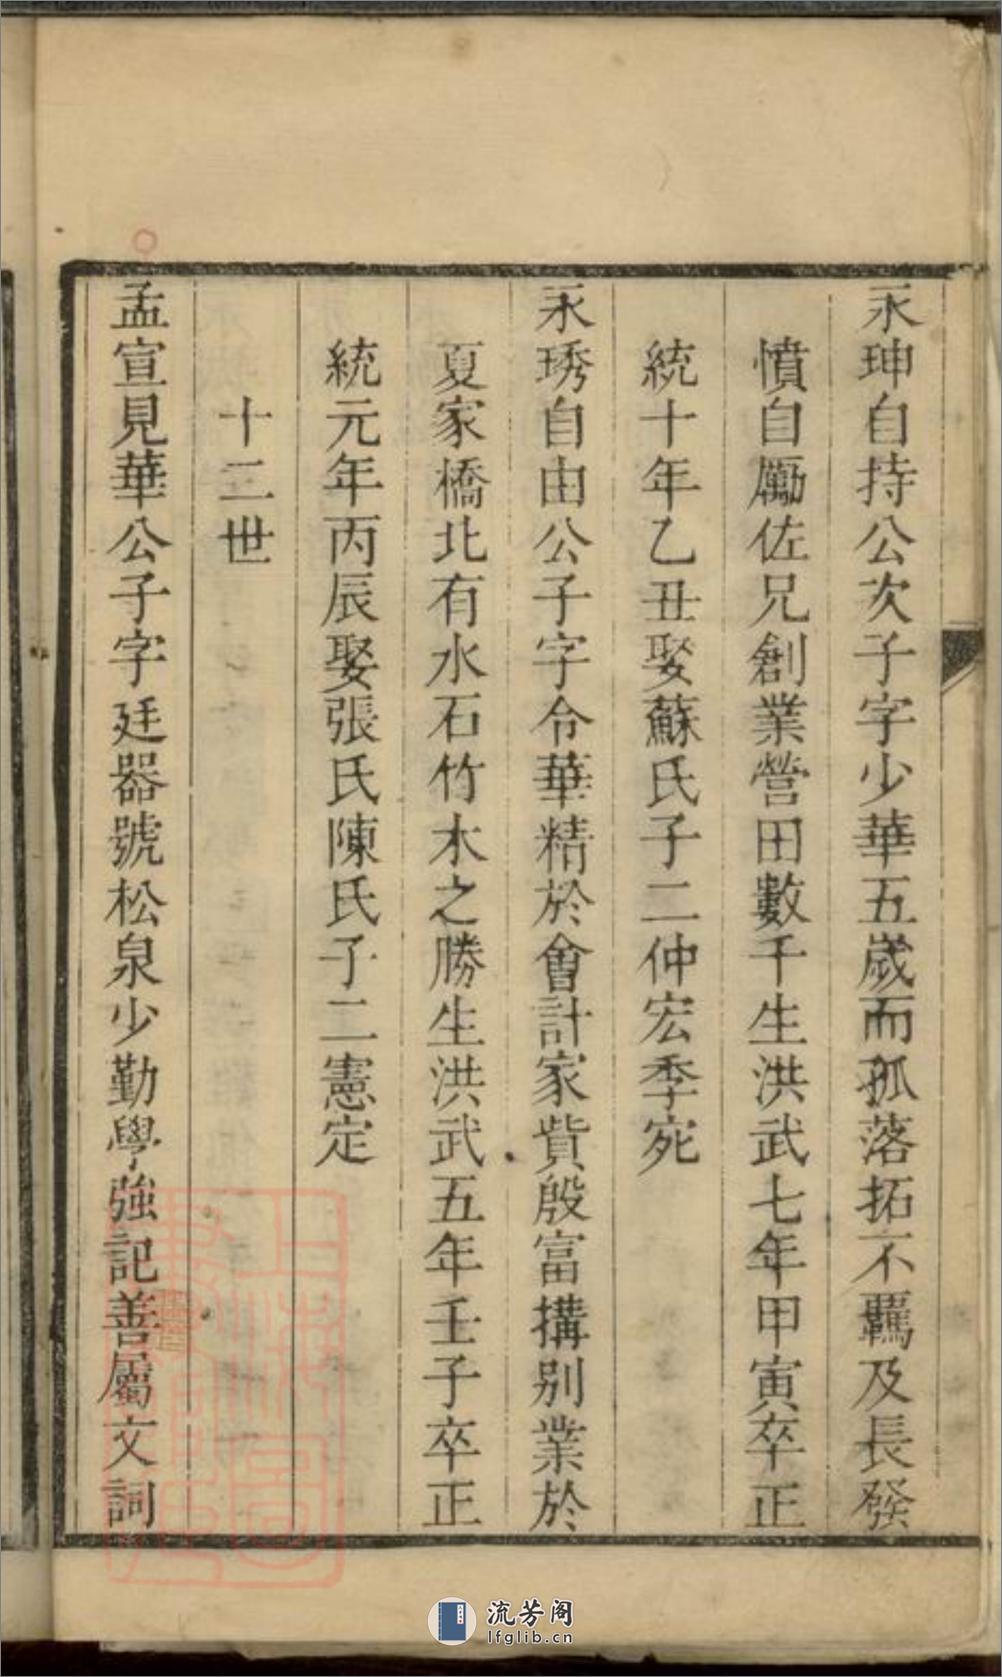 永珅自持公次子字少華五歲而孤落拓不羈及長發
憤自勵佐兄創業營田數千生洪武七年甲寅卒正
統十年乙丑娶蘇氏子二仲宏季宛
永琇自由公子字令華精於會計家貲殷富搆別業於
夏家橋北有水石竹木之勝生洪武五年壬子卒正
統元年丙辰娶張氏陳氏子二憲定
十二世
孟宣見華公子字廷器號松泉少勤學強記善屬文詞
流芳阁
lfglib.cn